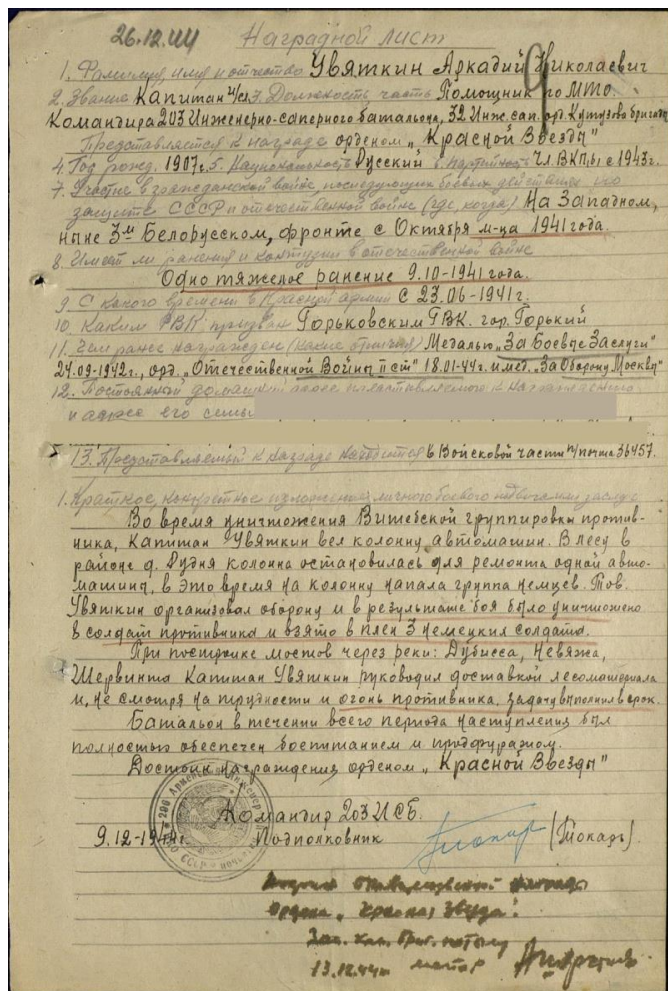 26.12.44 Наградной лист
1. Фамилия, имя и отчество Увяткин Аркадий Николаевич
2. Звание Капитан и/сл 3. Должность часть Помощник по МТО
Командира 203 Инженерно-саперного батальона, 32 Инж. сап. орд. Кутузова бригады
Представляется к награде орденом „Красной Звезды"
4. Год рожд. 1907 г. 5. Национальность Русский 6. Партийность Чл. ВКП(б) с 1943 г.
7. Участие в гражданской войне, последующих боевых действиях по
защите СССР и отечественной войне (где, когда) На Западном,
ныне 3м Белорусском, фронте с Октября м-ца 1941 года.
8. Имеет ли ранения и контузии в отечественной войне
Одно тяжелое ранение 9.10-1941 года.
9. С какого времени в Красной армии с 23.06-1941 г.
10. Каким РВК призван Горьковским ГВК. гор. Горький
11. Чем ранее награжден (какие отличия) Медалью „За Боевые Заслуги"
24.09-1942 г., орд. „Отечественной Войны II ст" 18.01-44 г. и мед. „За Оборону Москвы"
12. Постоянный домашний адрес представляемого к награждению
и адрес его семьи
13. Представляемый к награде находится в Войсковой части п/почта 36457.
1. Краткое, конкретное изложение личного боевого подвига или заслуг
Во время уничтожения Витебской группировки против-
ника, Капитан Увяткин вел колонну автомашин. В лесу в
районе д. Дудня колонна остановилась для ремонта одной авто-
машины, в это время на колонну напала группа немцев. Тов.
Увяткин организовал оборону и в результате боя было уничтожено
8 солдат противника и взято в плен 3 немецких солдата.
При постройке мостов через реки: Дубисса, Невяжа,
Шервинта Капитан Увяткин руководил доставкой лесоматериала
и, не смотря на трудности и огонь противника, задачу выполнил в срок.
Батальон в течении всего периода наступления был
полностью обеспечен боепитанием и продфуражом.
Достоин награждения орденом „Красной Звезды"
Командир 203 ИСБ.
9.12-1944 г. Подполковник (Токарь).
Ордена „Красная Звезда".
Зам. ком. бриг.
13.12.44 г. майор